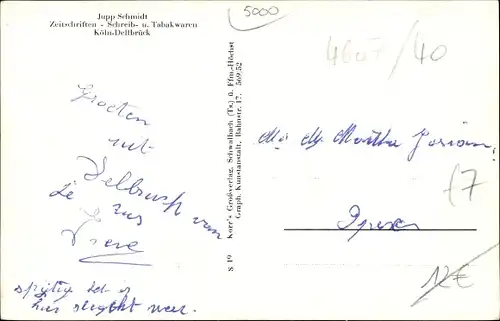 Jupp Schmidt
Zeitschriften - Schreib- u. Tabakwaren
Köln-Dellbrück
5000
4607/40
Groeten
uit
Delbrush van
Je zus
Irene
spijtig dat er
hier slecht weer.
Korr's Großverlag, Schwalbach (Ts.) ü. Ffm.-Höchst
Graph. Kunstanstalt, Bahnstr. 17, 569/52
S 19
Martha
17
12€